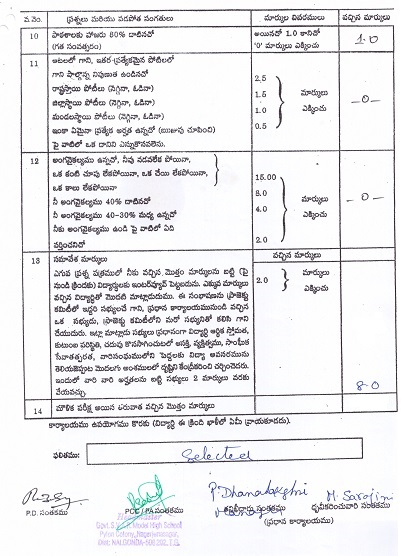 వ.నెం. ప్రశ్నలు మరియు పదపోత సంగతులు మార్కుల వివరములు వచ్చిన మార్కులు
10 పాఠశాలకు హాజరు 80% దాటినచో అయినచో 1.0 కానిచో 1.0
(గత సంవత్సరం) '0' మార్కులు ఎక్కించు
11 ఆటలలో గాని, ఇతర ప్రత్యేకమైన పోటీలలో
గాని పాల్గొన్న నిపుణత ఉండినచో 2.5
రాష్ట్రస్థాయి పోటీలు (నెగ్గినా, ఓడినా) 1.5 మార్కులు -0-
జిల్లాస్థాయి పోటీలు (నెగ్గినా, ఓడినా) 1.0 ఎక్కించు
మండలస్థాయి పోటీలు (నెగ్గినా, ఓడినా) 0.5
ఇంకా ఏమైనా ప్రత్యేక అర్హత ఉన్నచో (ఋజువు చూపించి)
పై వాటిలో ఒక దానిని ఎన్నుకొనవలెను.
12 అంగవైకల్యము ఉన్నచో, నీవు నడవలేక పోయినా,
ఒక కంటి చూపు లేకపోయినా, ఒక చేయి లేకపోయినా, 15.00
ఒక కాలు లేకపోయినా 8.0 మార్కులు
నీ అంగవైకల్యము 40% దాటినచో 4.0 ఎక్కించు -0-
నీ అంగవైకల్యము 40-30% మధ్య ఉన్నచో
నీకు అంగవైకల్యము ఉండి పై వాటిలో ఏది 2.0
వర్తించనిచో
13 సమావేశ మార్కులు వచ్చిన మార్కులు
ఎగువ ప్రశ్న పత్రములో నీకు వచ్చిన మొత్తం మార్కులను బట్టి (పై 2.0 మార్కులు
నుండి క్రిందకు) విద్యార్థులకు ఇంటర్వ్యూకి పెట్టబడును. ఎక్కువ మార్కులు ఎక్కించు
వచ్చిన విద్యార్థితో మొదట మాట్లాడుదుము. ఈ సంభాషణను ప్రాజెక్టు
కమిటీలో ఇద్దరి సభ్యులచే గాని, ప్రధాన కార్యాలయమునుండి వచ్చిన
ఒక సభ్యుడు, ప్రాజెక్టు కమిటీలోని మరో సభ్యునితో కలిసి గాని
చేయుదురు. ఇట్లా మాట్లాడు సభ్యులు ప్రధానంగా విద్యార్థి ఆర్థిక స్తోమత,
కుటుంబ పరిస్థితి, చదువు కొనసాగించుటలో ఆసక్తి, వ్యక్తిత్వము, సాంఘిక
సేవాతత్పరత, వారిసంఘములోని పెద్దలకు విద్యా ఆవసరమును
తెలియజెప్పుట మొదలగు అంశములలో దృష్టిని కేంద్రీకరించి చర్చించెదరు.
ఇందులో వారి వారి అర్హతలను బట్టి సభ్యులు 2 మార్కులు వరకు
వేయవచ్చు. 8-0
14 మౌఖిక పరీక్ష అయిన తరువాత వచ్చిన మొత్తం మార్కులు
కార్యాలయము ఉపయోగము కొరకు (విద్యార్థి ఈ క్రింది ఖాళీలో ఏమీ వ్రాయకూడదు).
ఫలితము: Selected
P. Dhanalakshmi M. Sarojini
P.D. సంతకము PCC / PA సంతకము తనిఖీదారు సంతకము ధృవీకరించువారి సంతకము
(ప్రధాన కార్యాలయము)
Model High School
Pylon Colony, Nagarjunasagar,
Dist: NALGONDA-508 202, T.S.